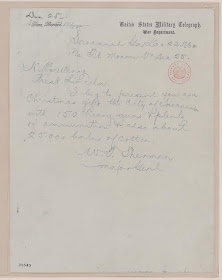 United States Military Telegraph,
War Department.
Savannah Ga Dec 22 1864
Via Ft Monroe Va Dec 25.
Prest Lincoln
I beg to present you as a
Christmas gift the City of Savannah
with 150 heavy guns & plenty
of ammunition & also about
25.000 bales of cotton
W.T. Sherman
Major Genl